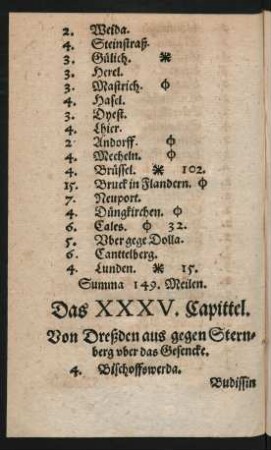 2. Welda.
4. Steinstraß.
3. Gülich. ✻
3. Herel.
3. Mastrich. ϕ
4. Hasel.
3. Dyest.
4. Lhier.
2 Andorff. ϕ
4. Mecheln. ϕ
4. Brüssel. ✻ 102.
15. Bruck in Flandern. ϕ
7. Neuport.
4. Düngkirchen. ϕ
6. Cales. ϕ 32.
5. Vber gege Dolla.
6. Canttelberg.
4. Lunden. ✻ 15.
Summa 149. Meilen.
Das XXXV. Capittel.
Von Dreßden aus gegen Stern-
berg vber das Gesencke.
4. Bischoffswerda.
Budissin